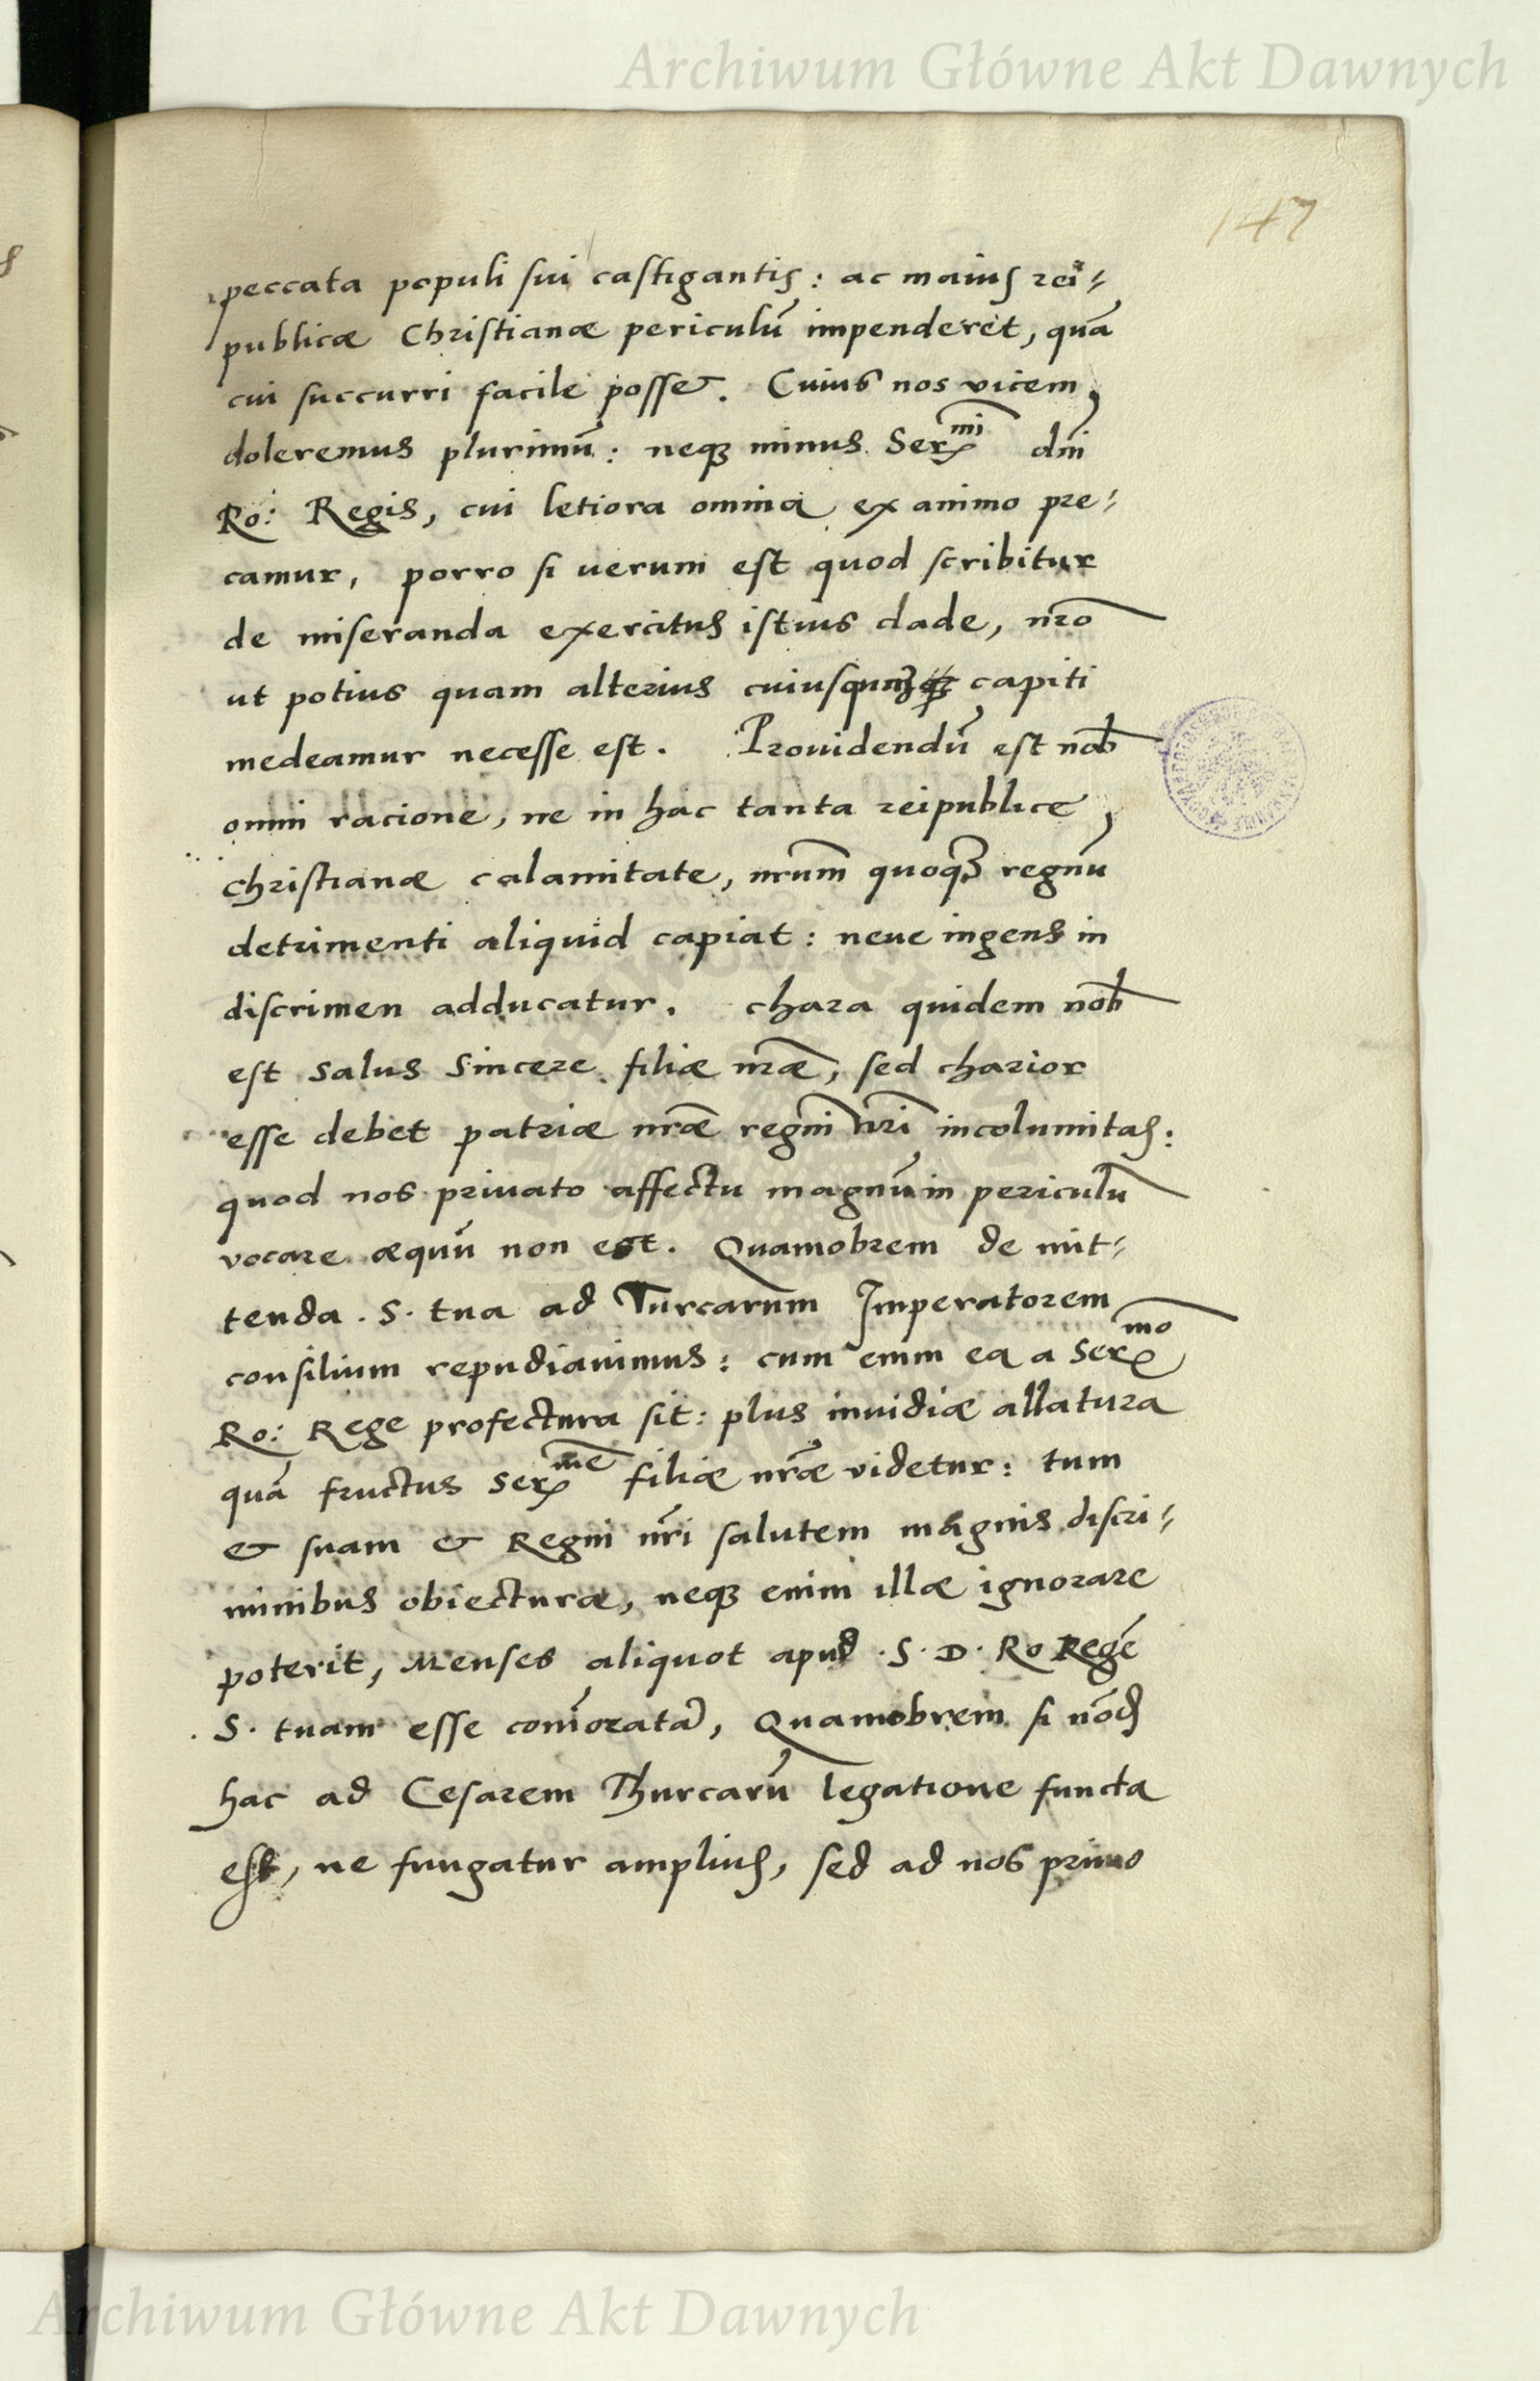 Archiwum Główne Akt Dawnych
147
peccata populi sui castigantis: ac maius rei-
publicæ Christianæ periculū impenderet, quā
cui succurri facile posset. Cuius nos vicem,
doleremus plurimū: neq3 minus Ser^mi dn̄i
Ro: Regis, cui letiora omnia ex animo pre-
camur, porro si uerum est quod scribitur
de miseranda exercitus istius clade, nr̄o
ut potius quam alterius cuiusqunq3 capiti
medeamur necesse est. Prouidendū est nob̄
omni racione, ne in hac tanta reipublice,
christianæ calamitate, nr̄um quoq3 regnū
detrimenti aliquid capiat: neue ingens in
discrimen adducatur. chara quidem nob̄
est salus sincere filiæ nr̄æ, sed charior
esse debet patriæ nr̄æ regni nr̄i incolumitas:
quod nos priuato affectu magnū in periculū
vocare æquū non est. Quamobrem de mit-
tenda .S. tua ad Turcarum Imperatorem
consilium repudiauimus: cum enim ea a Ser^mo
Ro: Rege profectura sit: plus inuidiæ allatura
quā fructus Ser^me filiæ nr̄æ videtur: tum
& suam & Regni nr̄i salutem magnis discri-
minibus obiecturæ, neq3 enim illæ ignorare
poterit, Menses aliquot apud .S. D. Ro Regē
S. tuam esse com̄oratā, Quamobrem si nōd
hac ad Cesarem Thurcarū legatione functa
est, ne fungatur amplius, sed ad nos primo
Archiwum Główne Akt Dawnych